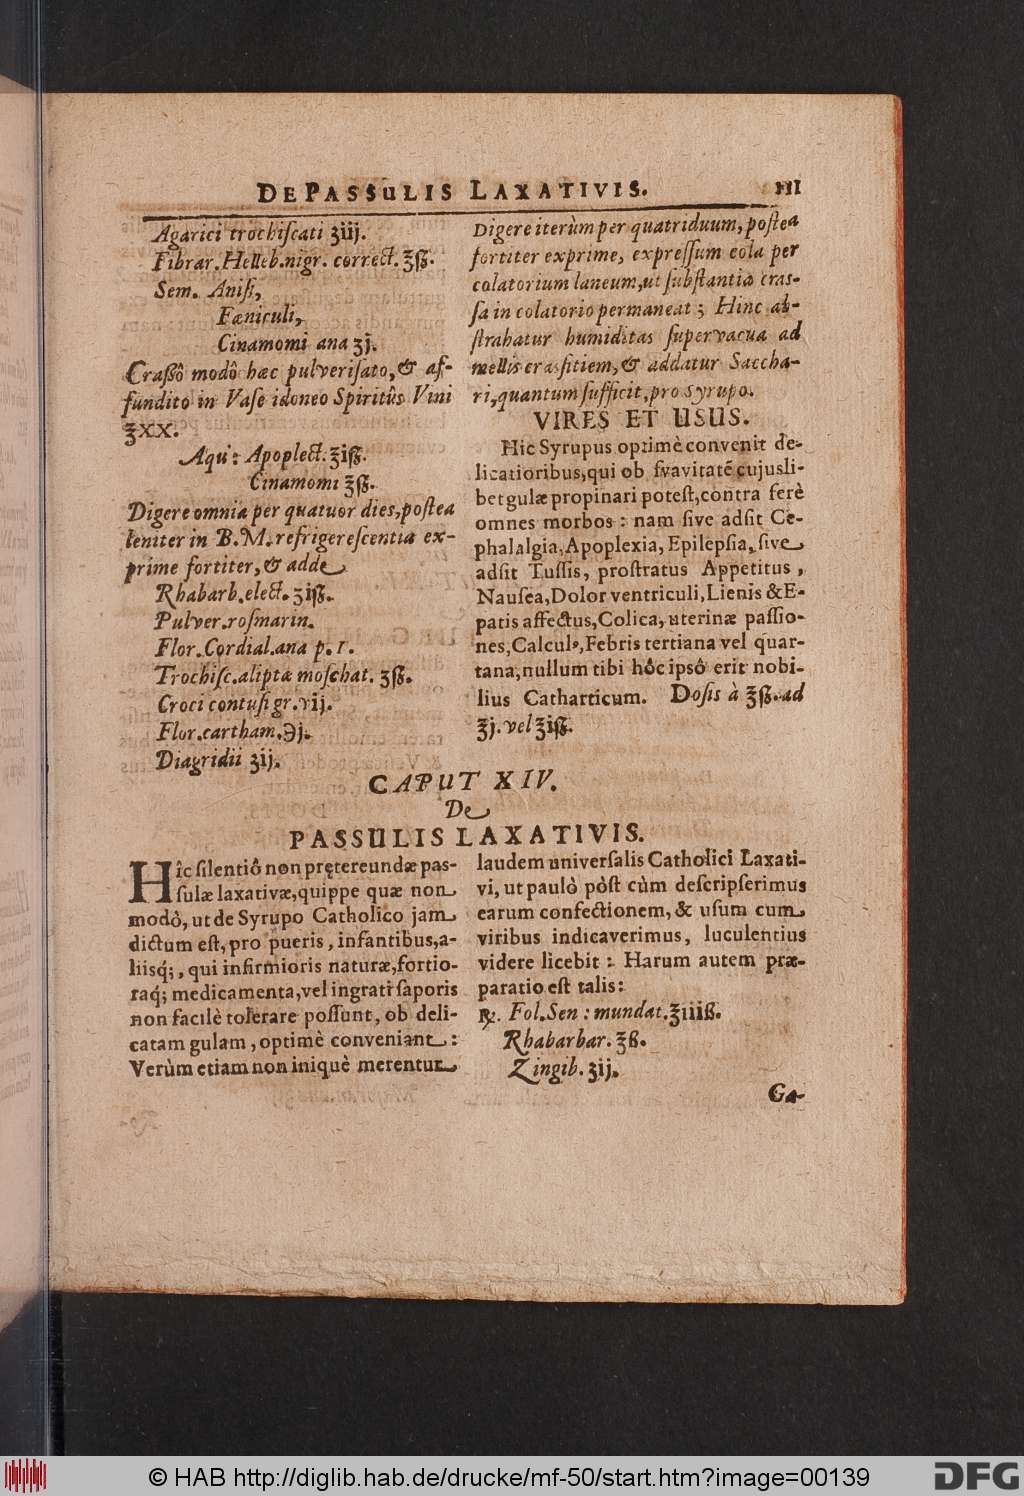 DE PASSULIS LAXATIVIS. 111
Agarici trochiſcati ʒiij.
Fibrar. Helleb. nigr. correct. ℥ß.
Sem. Aniſi,
Fæniculi,
Cinamomi ana ʒj.
Craßô modô hæc pulveriſato, & af-
fundito in Vaſe idoneo Spiritûs Vini
℥XX.
Aqu: Apoplect. ℥iß.
Cinamomi ℥ß.
Digere omnia per quatuor dies, poſtea
leniter in B. M. refrigereſcentia ex-
prime fortiter, & adde
Rhabarb. elect. ʒiß.
Pulver. roſmarin.
Flor. Cordial. ana p. 1.
Trochiſc. aliptæ moſchat. ʒß.
Croci contuſi gr. vij.
Flor. cartham. ℈j.
Diagridii ʒij.
Digere iterùm per quatriduum, poſtea
fortiter exprime, expreſſum cola per
colatorium laneum, ut ſubſtantia craſ-
ſa in colatorio permaneat; Hinc ab-
ſtrahatur humiditas ſupervacua ad
mellis craſſitiem, & addatur Saccha-
ri, quantum ſufficit, pro syrupo.
VIRES ET USUS.
Hic Syrupus optimè convenit de-
licatioribus, qui ob ſvavitatē cujusli-
bet gulæ propinari poteſt, contra ferè
omnes morbos: nam ſive adſit Ce-
phalalgia, Apoplexia, Epilepſia, ſive
adſit Tuſſis, proſtratus Appetitus,
Nauſea, Dolor ventriculi, Lienis & E-
patis affectus, Colica, uterinæ paſſio-
nes, Calculꝰ, Febris tertiana vel quar-
tana, nullum tibi hôc ipsô erit nobi-
lius Catharticum. Doſis à ℥ß. ad
℥j. vel ℥iß.
CAPUT XIV.
De
PASSULIS LAXATIVIS.
Hîc ſilentiô non prętereundæ paſ-
ſulæ laxativæ, quippe quæ non
modò, ut de Syrupo Catholico jam
dictum eſt, pro pueris, infantibus, a-
liisq́;, qui infirmioris naturæ, fortio-
raq́; medicamenta, vel ingrati ſaporis
non facilè tolerare poſſunt, ob deli-
catam gulam, optimè conveniant:
Verùm etiam non iniquè merentur
laudem univerſalis Catholici Laxati-
vi, ut paulò pòſt cùm deſcripſerimus
earum confectionem, & uſum cum
viribus indicaverimus, luculentius
videre licebit: Harum autem præ-
paratio eſt talis:
℞. Fol. Sen: mundat. ℥iiiß.
Rhabarbar. ℥ß.
Zingib. ʒij.
Ga-
© HAB http://diglib.hab.de/drucke/mf-50/start.htm?image=00139
DFG